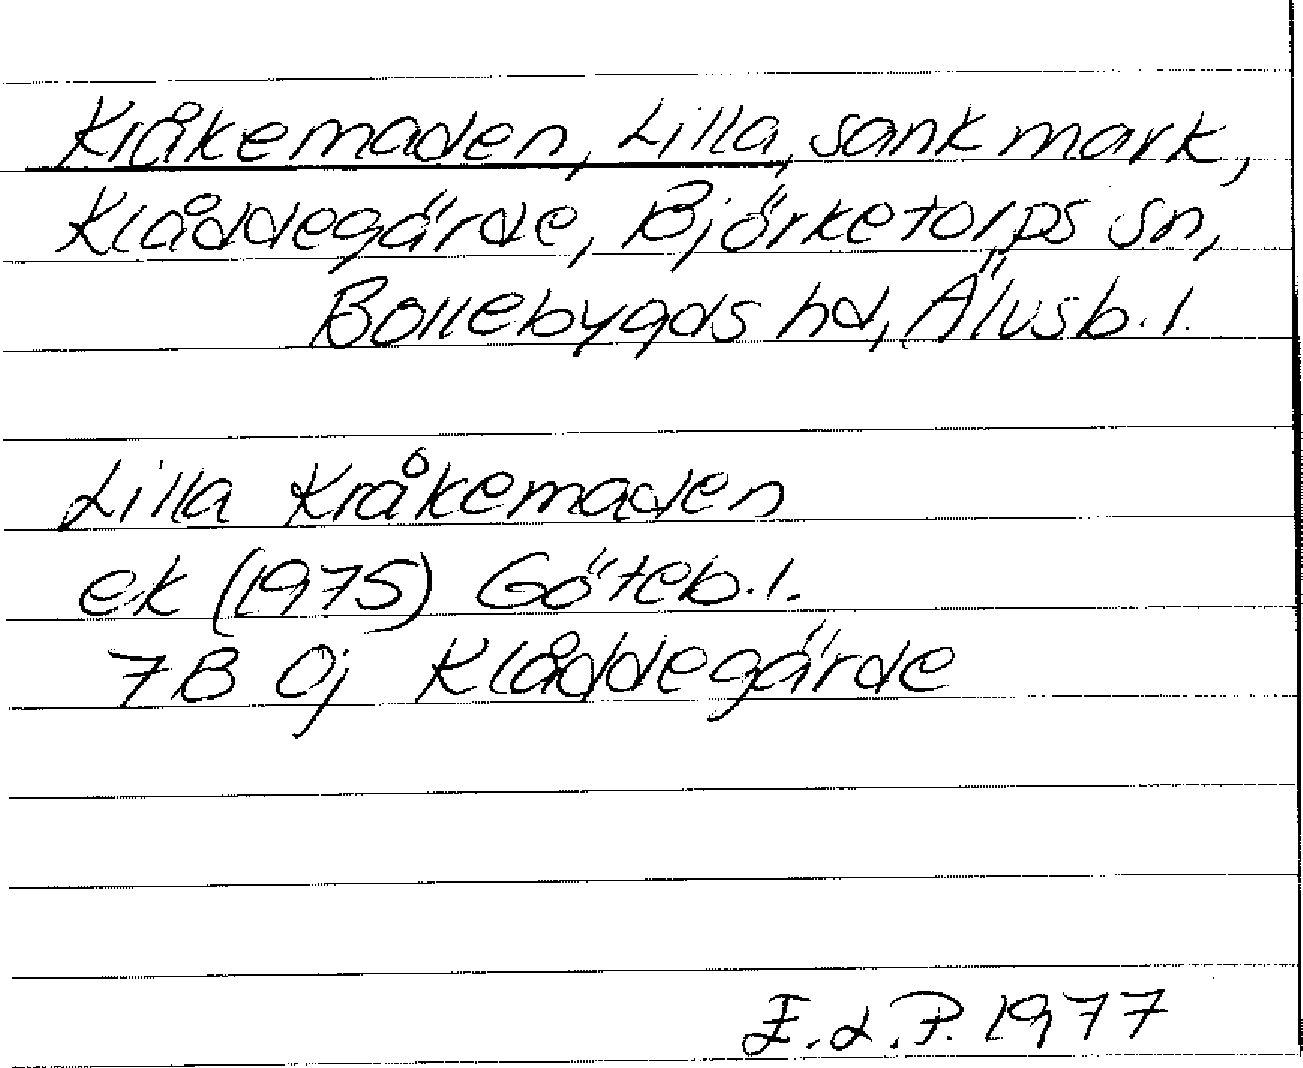 Kråkemaden, Lilla, sank mark,
Klåddegärde, Björketorps sn,
Bollebygds hd, Älvsb. l.
Lilla Kråkemaden
ek (1975) Göteb. l.
7B 0j Klåddegärde
E.L.P. 1977